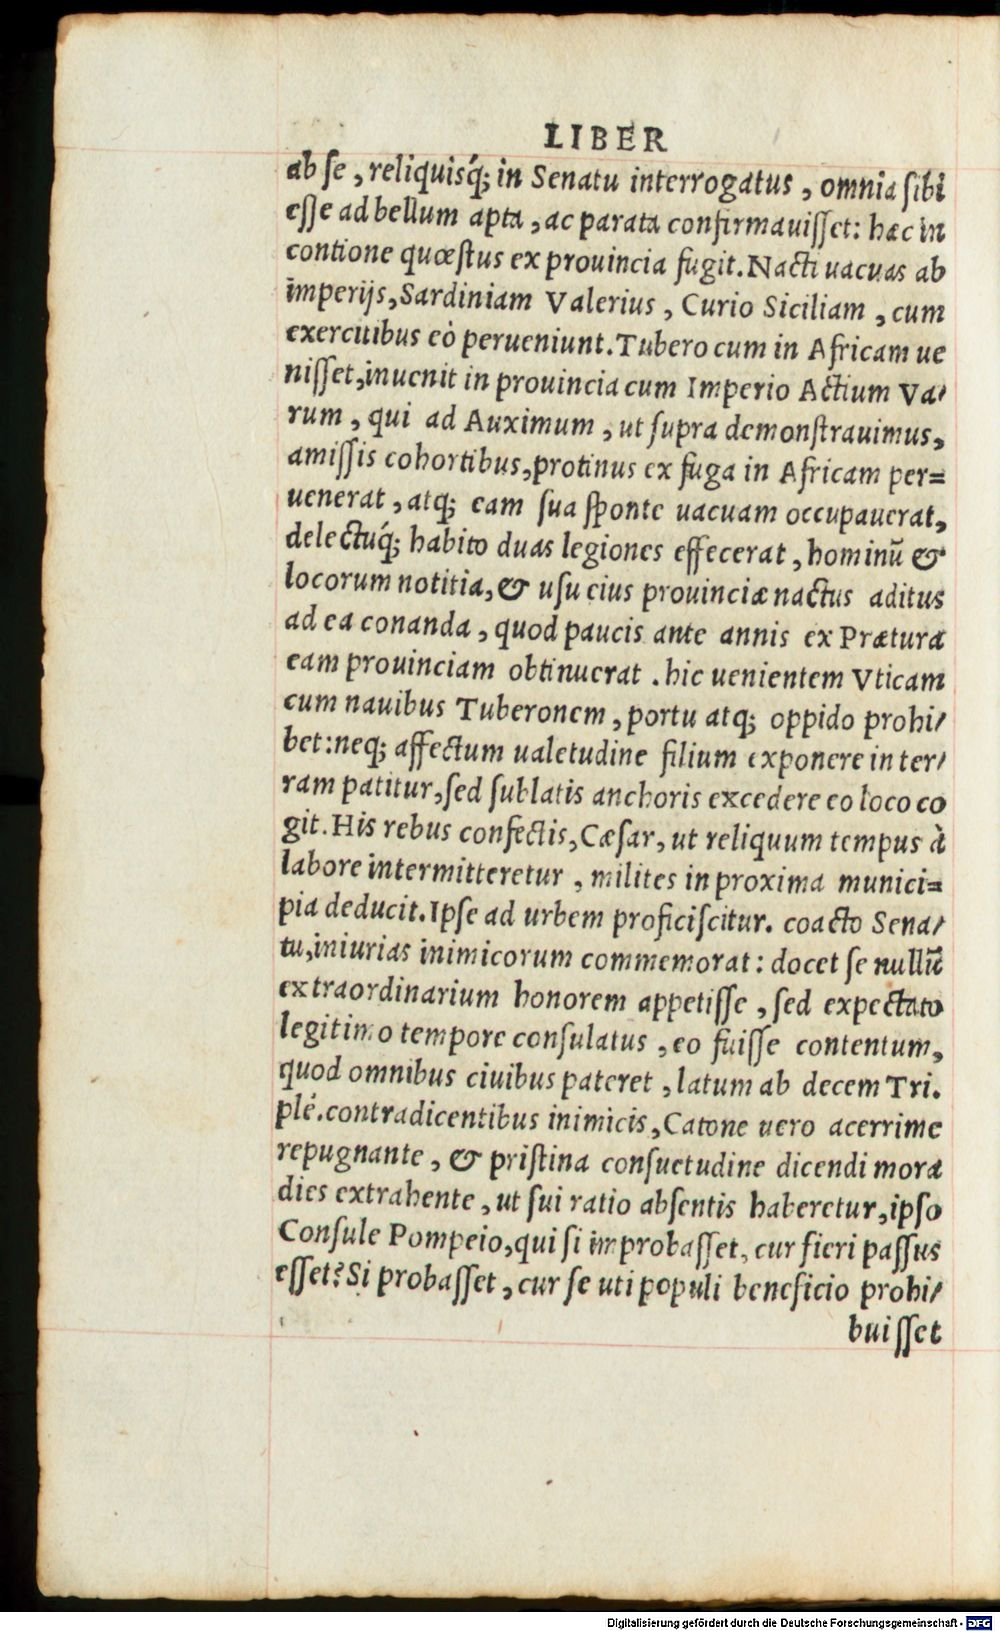 LIBER
ab ſe, reliquisq́; in Senatu interrogatus, omnia ſibi
eſſe ad bellum apta, ac parata confirmauiſſet: hæc in
contione quæſtus ex prouincia fugit. Nacti uacuas ab
imperijs, Sardiniam Valerius, Curio Siciliam, cum
exercitibus eò perueniunt. Tubero cum in Africam ue
niſſet, inuenit in prouincia cum Imperio Actium Va/
rum, qui ad Auximum, ut ſupra demonſtrauimus,
amiſſis cohortibus, protinus ex fuga in Africam per=
uenerat, atq; eam ſua ſponte uacuam occupauerat,
delectuq́; habito duas legiones effecerat, hominũ &
locorum notitia, & uſu eius prouinciæ nactus aditus
ad ea conanda, quod paucis ante annis ex Prætura
eam prouinciam obtinuerat. hic uenientem Vticam
cum nauibus Tuberonem, portu atq; oppido prohi/
bet: neq; affectum ualetudine filium exponere in ter/
ram patitur, ſed ſublatis anchoris excedere eo loco co
git. His rebus confectis, Cæſar, ut reliquum tempus à
labore intermitteretur, milites in proxima munici=
pia deducit. Ipſe ad urbem proficiſcitur. coacto Sena/
tu, iniurias inimicorum commemorat: docet ſe nullũ
extraordinarium honorem appetiſſe, ſed expectato
legitimo tempore conſulatus, eo fuiſſe contentum,
quod omnibus ciuibus pateret, latum ab decem Tri.
plé. contradicentibus inimicis, Catone uero acerrime
repugnante, & priſtina conſuetudine dicendi mora
dies extrahente, ut ſui ratio abſentis haberetur, ipſo
Conſule Pompeio, qui ſi improbaſſet, cur fieri paſſus
eſſet? Si probaſſet, cur ſe uti populi beneficio prohi/
buiſſet
Digitalisierung gefördert durch die Deutsche Forschungsgemeinschaft - DFG